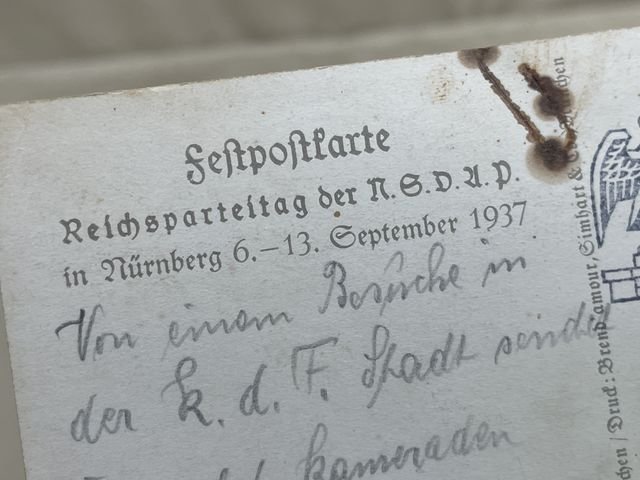 Festpostkarte
Reichsparteitag der N.S.D.A.P.
in Nürnberg 6.–13. September 1937
Von einem Besuche in
der K. d. F. Stadt sendet
kameraden
chen / Druck: Brend'amour, Simhart & Co., München